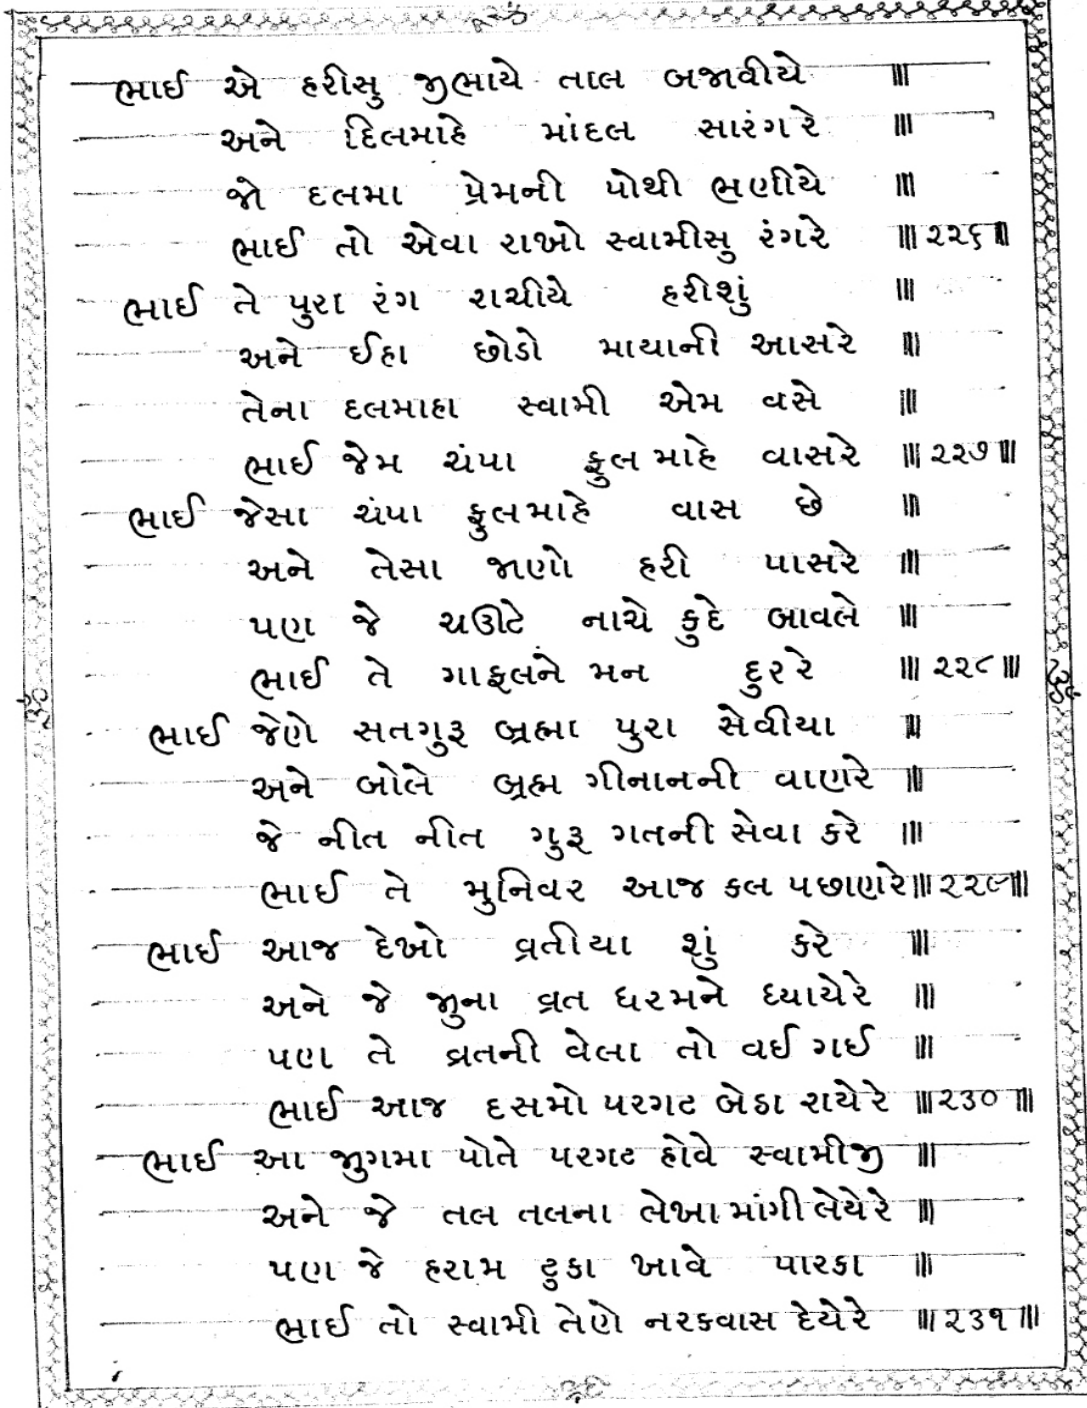 ભાઈ એ હરીસુ જીભાયે તાલ બજાવીયે ॥
અને દિલમાહે માંદલ સારંગરે ॥
જો દલમા પ્રેમની પોથી ભણીયે ॥
ભાઈ તો એવા રાખો સ્વામીસુ રંગરે ॥૨૨૬॥
ભાઈ તે પુરા રંગ રાચીયે હરીશું ॥
અને ઈહા છોડો માયાની આસરે ॥
તેના દલમાહા સ્વામી એમ વસે ॥
ભાઈ જેમ ચંપા ફુલ માહે વાસરે ॥૨૨૭॥
ભાઈ જેસા ચંપા ફુલમાહે વાસ છે ॥
અને તેસા જાણો હરી પાસરે ॥
પણ જે ચઊટે નાચે કુદે બાવલે ॥
ભાઈ તે ગાફલને મન દુરરે ॥૨૨૮॥
ભાઈ જેણે સતગુરૂ બ્રહ્મા પુરા સેવીયા ॥
અને બોલે બ્રહ્મ ગીનાનની વાણરે ॥
જે નીત નીત ગુરૂ ગતની સેવા કરે ॥
ભાઈ તે મુનિવર આજ કલ પછાણરે॥૨૨૯॥
ભાઈ આજ દેખો વ્રતીયા શું કરે ॥
અને જે જુના વ્રત ધરમને ધ્યાયેરે ॥
પણ તે વ્રતની વેલા તો વઈ ગઈ ॥
ભાઈ આજ દસમો પરગટ બેઠા રાયેરે ॥૨૩૦॥
ભાઈ આ જુગમા પોતે પરગટ હોવે સ્વામીજી ॥
અને જે તલ તલના લેખા માંગી લેયેરે ॥
પણ જે હરામ ટુકા ખાવે પારકા ॥
ભાઈ તો સ્વામી તેણે નરકવાસ દેયેરે ॥૨૩૧॥